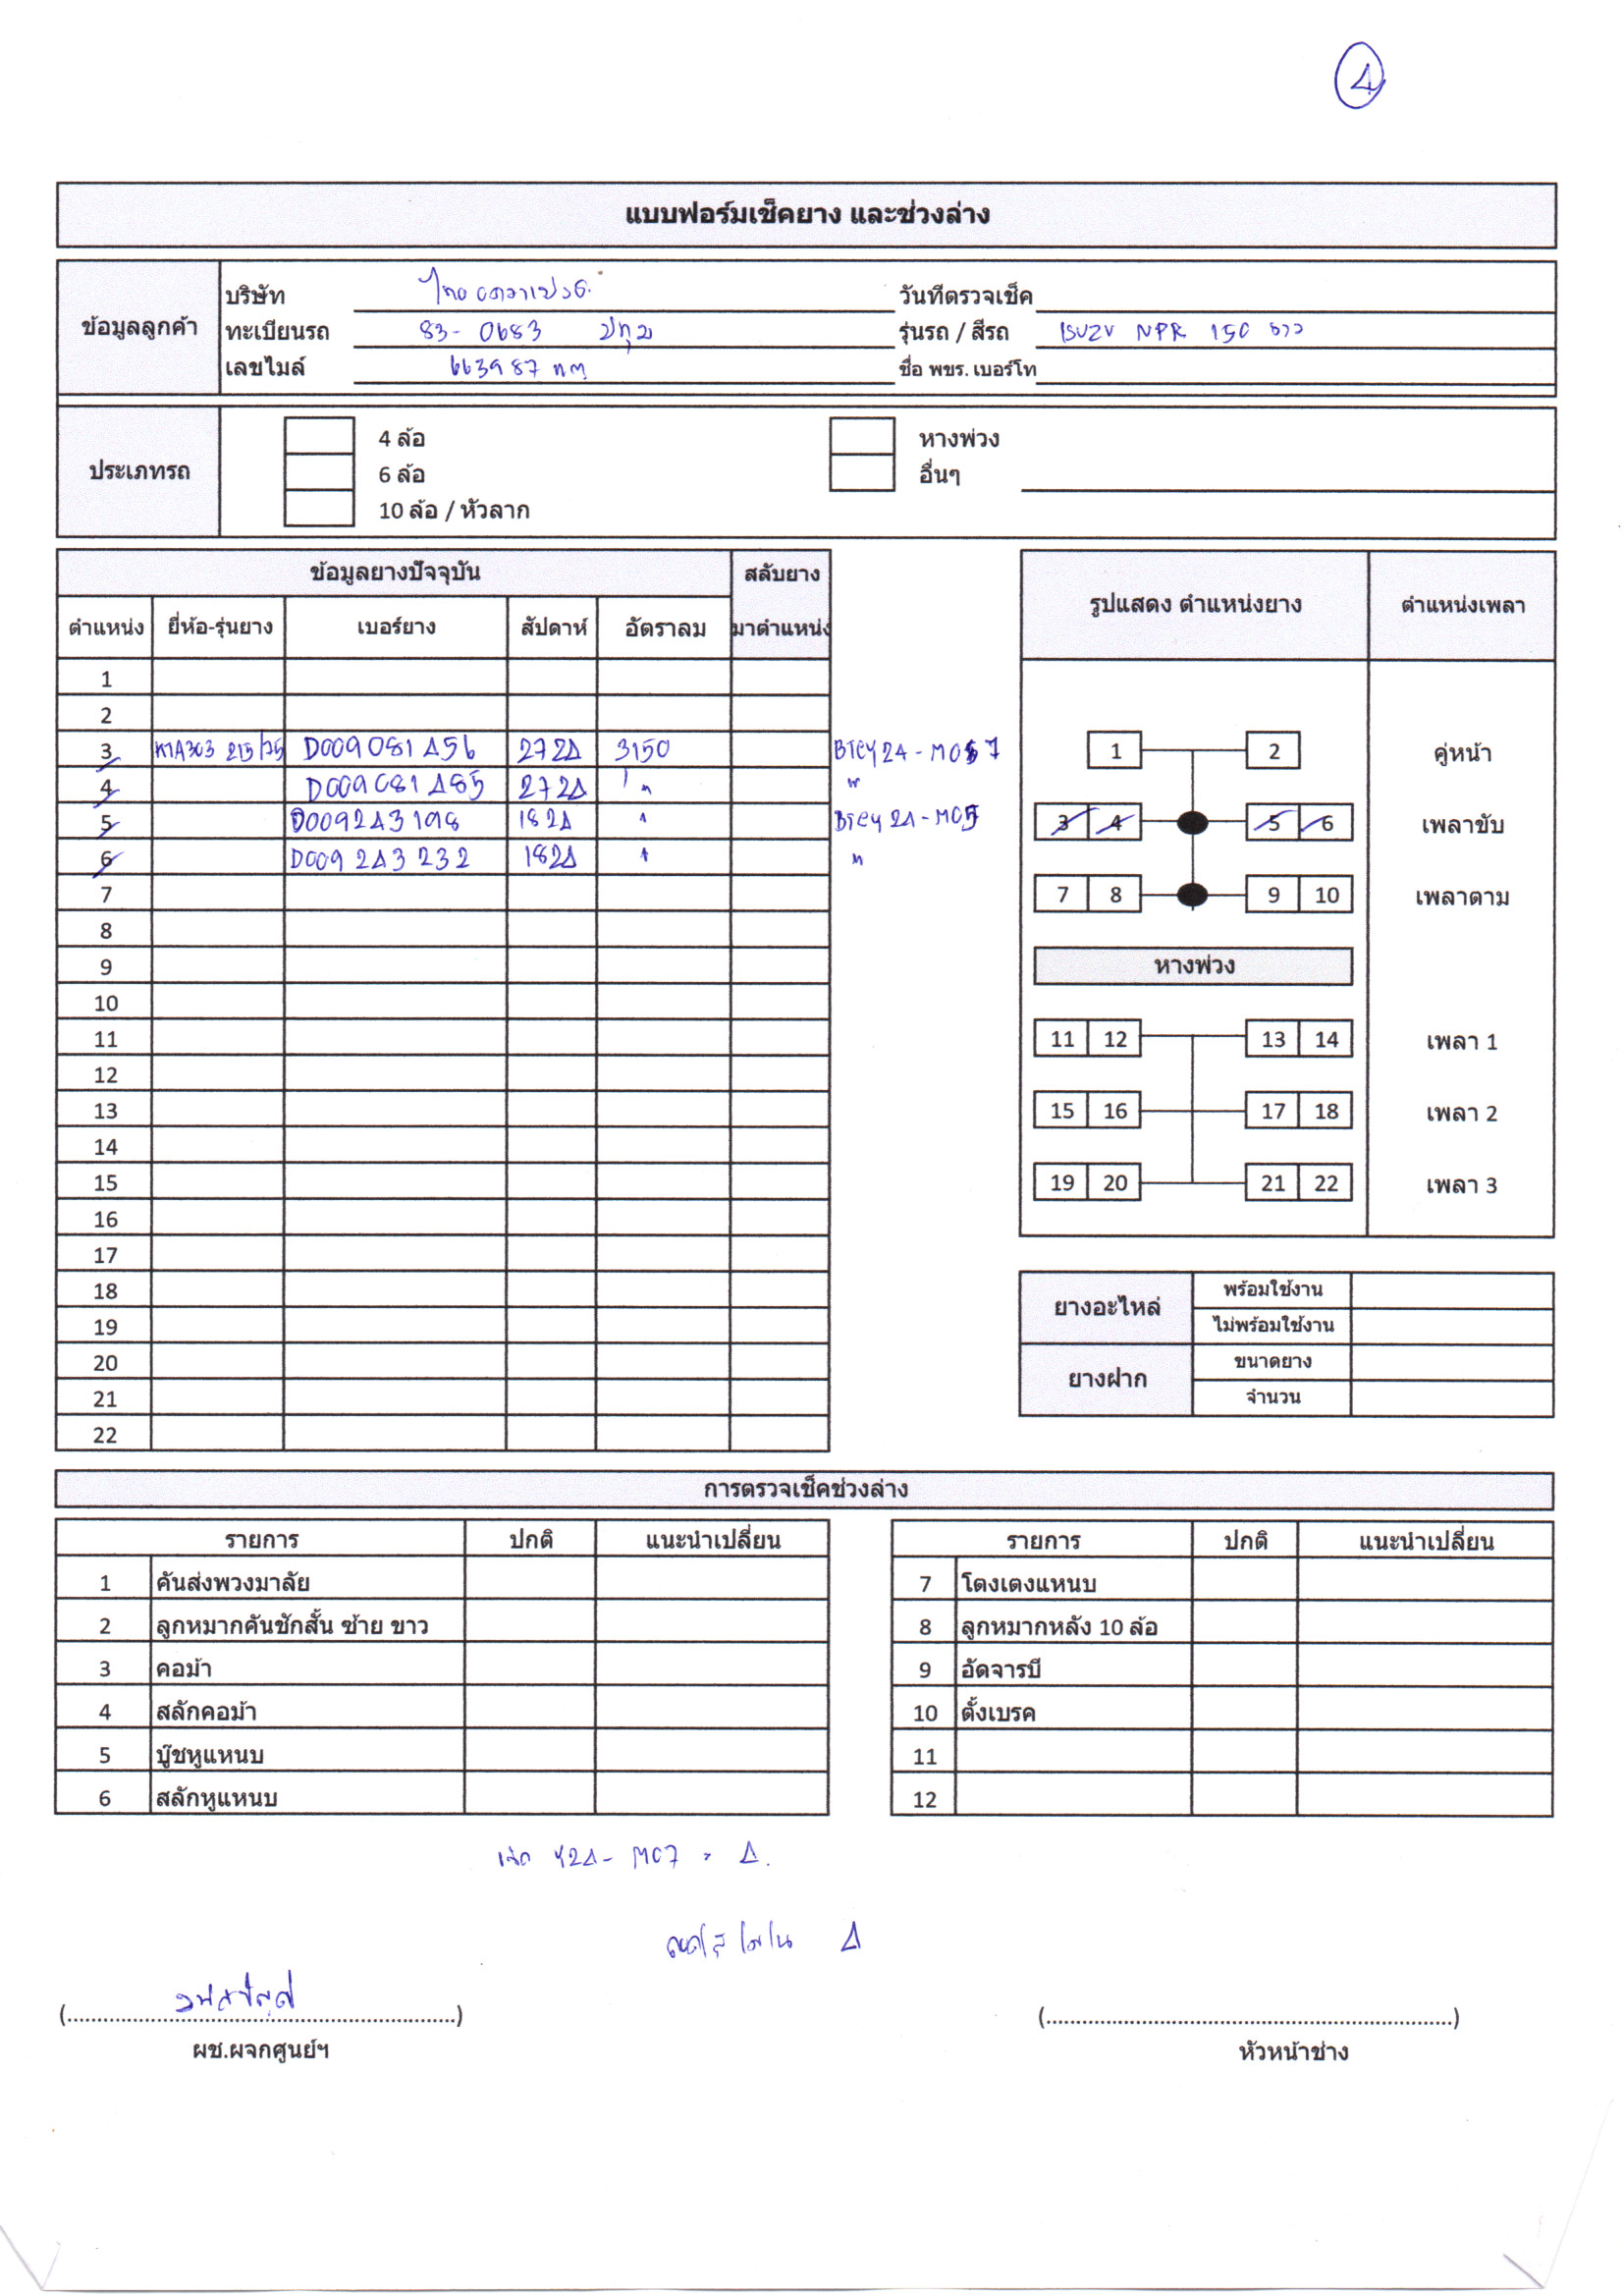 4
แบบฟอร์มเช็คยาง และช่วงล่าง
ข้อมูลลูกค้า
บริษัท ไทย
วันที่ตรวจเช็ค
ทะเบียนรถ 83-0683 ปทุม
รุ่นรถ / สีรถ ISUZU NPR 150 ขาว
เลขไมล์ 663987 กม
ชื่อ พขร. เบอร์โท
ประเภทรถ
4 ล้อ
หางพ่วง
6 ล้อ
อื่นๆ
10 ล้อ / หัวลาก
ข้อมูลยางปัจจุบัน สลับยาง
ตำแหน่ง ยี่ห้อ-รุ่นยาง เบอร์ยาง สัปดาห์ อัตราลม มาตำแหน่ง
1
2
3 KTA303 215/75 D009081456 2724 3150 BTCY24-M07
4 D009081485 2724 "
5 D009243198 1824 " BTCY24-M05
6 D009243232 1824 " "
7
8
9
10
11
12
13
14
15
16
17
18
19
20
21
22
รูปแสดง ตำแหน่งยาง ตำแหน่งเพลา
1 2 คู่หน้า
3 4 5 6 เพลาขับ
7 8 9 10 เพลาตาม
หางพ่วง
11 12 13 14 เพลา 1
15 16 17 18 เพลา 2
19 20 21 22 เพลา 3
ยางอะไหล่ พร้อมใช้งาน
ไม่พร้อมใช้งาน
ยางฝาก ขนาดยาง
จำนวน
การตรวจเช็คช่วงล่าง
รายการ ปกติ แนะนำเปลี่ยน
1 คันส่งพวงมาลัย
2 ลูกหมากคันชักสั้น ซ้าย ขาว
3 คอม้า
4 สลักคอม้า
5 บู๊ชหูแหนบ
6 สลักหูแหนบ
รายการ ปกติ แนะนำเปลี่ยน
7 โตงเตงแหนบ
8 ลูกหมากหลัง 10 ล้อ
9 อัดจารบี
10 ตั้งเบรค
11
12
Y24-M07 = 4.
4
(....................)
ผช.ผจกศูนย์ฯ
(....................)
หัวหน้าช่าง